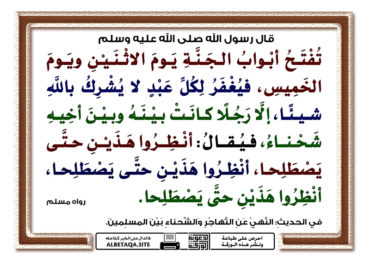 قال رسول الله صلى الله عليه وسلم
تُفْتَحُ أَبْوَابُ الْجَنَّةِ يَوْمَ الاثْنَيْنِ وَيَوْمَ
الْخَمِيسِ، فَيُغْفَرُ لِكُلِّ عَبْدٍ لا يُشْرِكُ بِاللَّهِ
شَيْئًا، إِلَّا رَجُلًا كَانَتْ بَيْنَهُ وَبَيْنَ أَخِيهِ
شَحْنَاءُ، فَيُقَالُ: أَنْظِرُوا هَذَيْنِ حتَّى
يَصْطَلِحا، أَنْظِرُوا هَذَيْنِ حتَّى يَصْطَلِحا،
أَنْظِرُوا هَذَيْنِ حتَّى يَصْطَلِحا.
رواه مسلم
في الحديث: النَّهيُ عن التَّهاجُرِ والشَّحناءِ بيْن المسلمين.
احرص على طباعة
ونشر هذه الورقة
الدال على الخير كفاعله
ALBETAQA.SITE